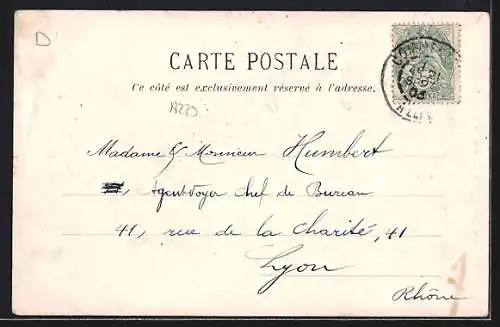 D
CARTE POSTALE
Ce côté est exclusivement réservé à l'adresse.
A229
Madame & Monsieur Humbert
Agent Voyer Chef de Bureau
41, rue de la Charité, 41
Lyon
Rhône
04